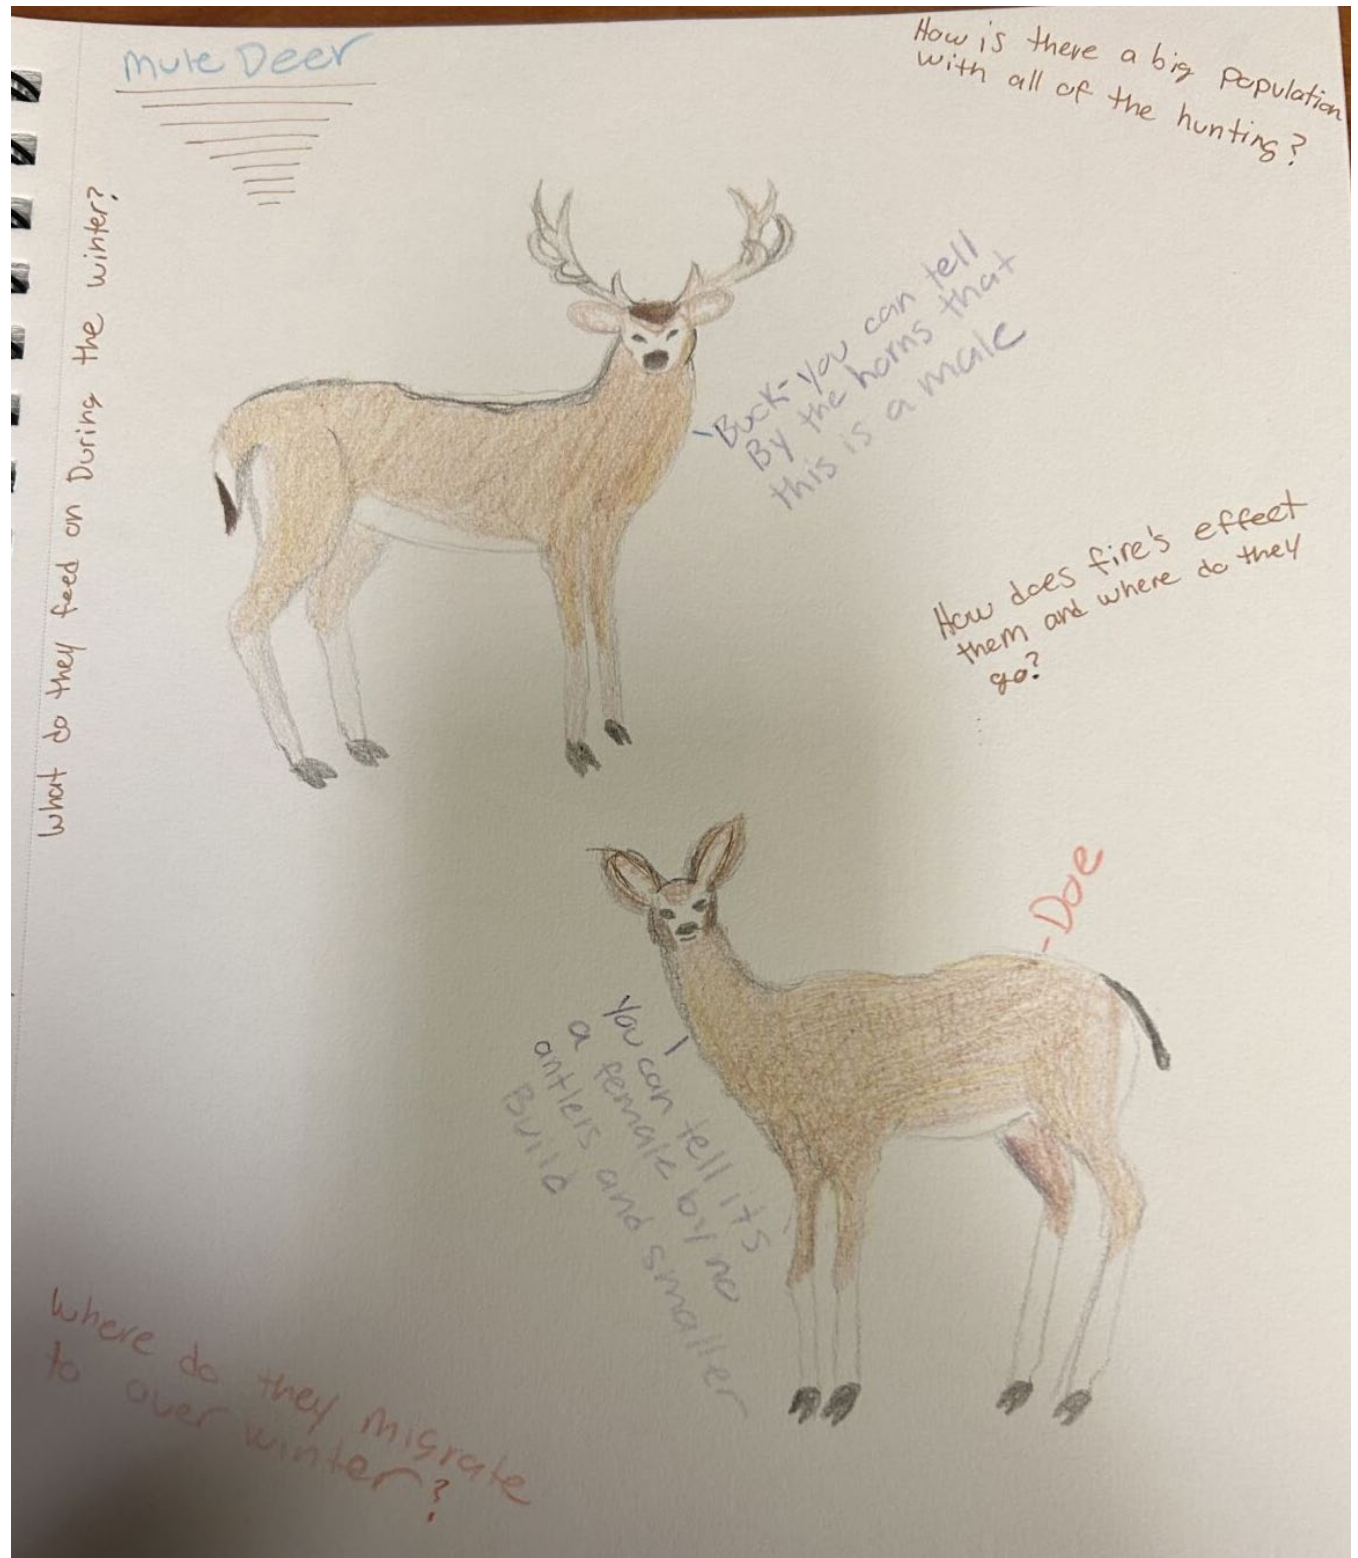 Mule Deer
How is there a big population
with all of the hunting?
What do they feed on During the winter?
Buck - you can tell
By the horns that
this is a male
How does fire's effect
them and where do they
go?
- Doe
You can tell its
a female by no
antlers and smaller
Build
Where do they migrate
to over winter?